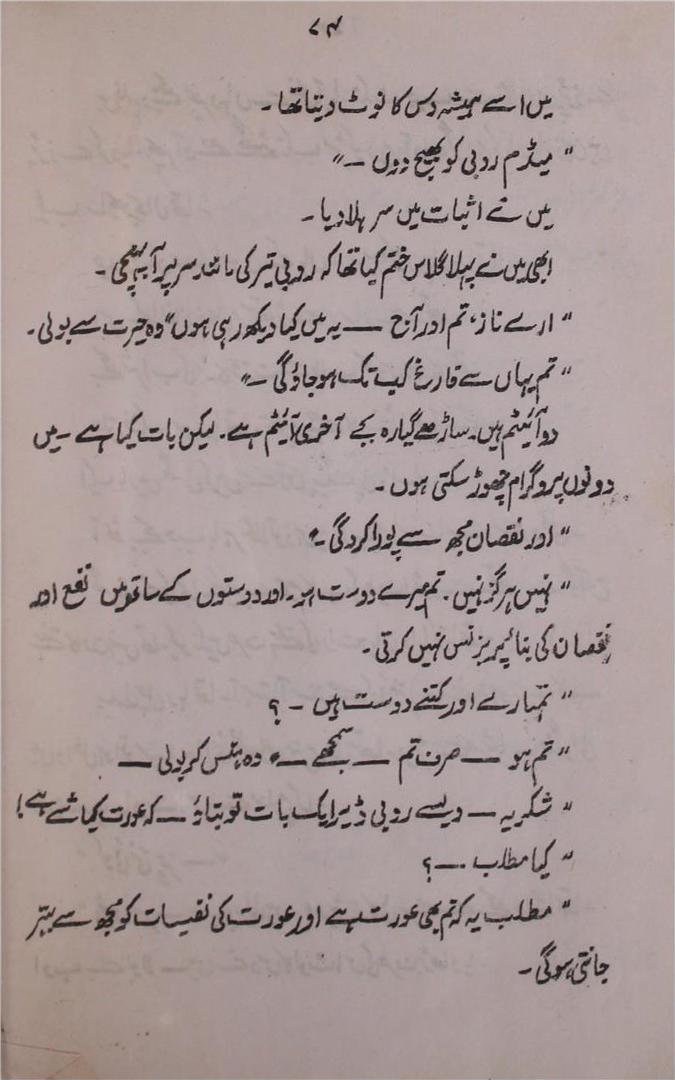 ۷۴
میں اسے ہمیشہ دس کا نوٹ دیتا تھا۔
" میڈم روبی کو بھیج دوں ــ "
میں نے اثبات میں سر ہلا دیا۔
ابھی میں نے پہلا گلاس ختم کیا تھا کہ روبی تیر کی مانند سر پر آ پہنچی۔
" ارے ناز، تم اور آج ـــ یہ میں کیا دیکھ رہی ہوں " وہ حیرت سے بولی۔
" تم یہاں سے فارغ کب تک ہو جاؤ گی ــ "
دو آئیٹم ہیں۔ ساڑھے گیارہ بجے آخری آئیٹم ہے۔ لیکن بات کیا ہے ــ میں
دونوں پروگرام چھوڑ سکتی ہوں۔
" اور نقصان مجھ سے پورا کرو گی ــ "
" نہیں ہرگز نہیں۔ تم میرے دوست ہو۔ اور دوستوں کے ساتھ میں نفع اور
نقصان کی بنا پر بزنس نہیں کرتی۔
" تمہارے اور کتنے دوست ہیں ــ ؟
" تم ہو ـــ صرف تم ـــ سمجھے ــ " وہ ہنس کر بولی ـــ
" شکریہ ــ ویسے روبی ڈیر ایک بات تو بتاؤ ـــ کہ عورت کیا شے ہے!
" کیا مطلب ــ ؟
" مطلب یہ کہ تم بھی عورت ہے اور عورت کی نفسیات کو مجھ سے بہتر
جانتی ہو گی۔